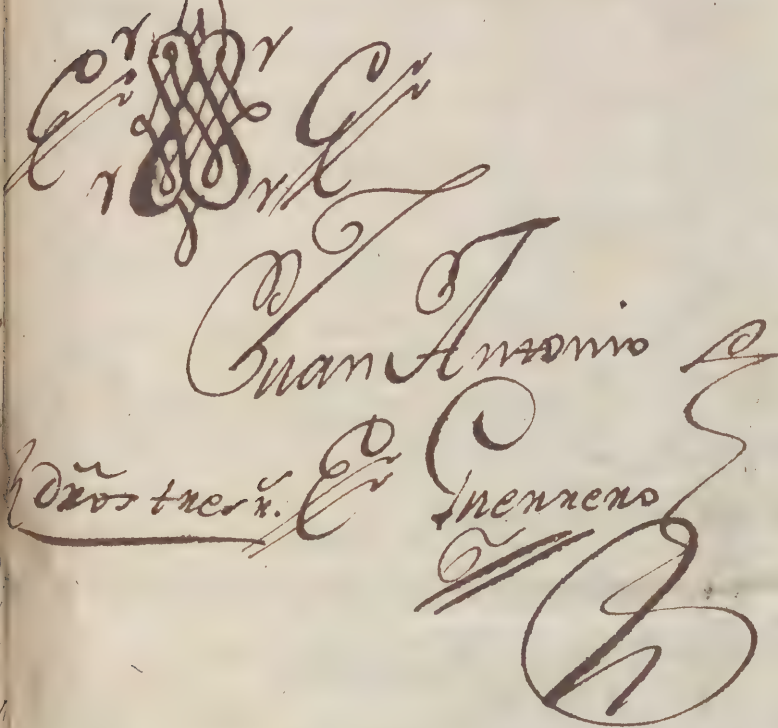 Juan Antonio
dr̃os tres rr̃. Guerrero